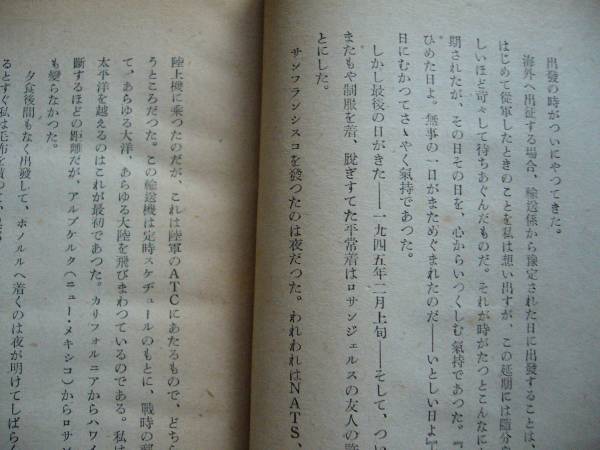 出發の時がついにやつてきた。
海外へ出征する場合、輸送係から豫定された日に出發することは、
はじめて從軍したときのことを私は想い出すが、この延期には隨分
しいほど苛々して待ちあぐんだものだ。それが時がたつとこんなに
期されたが、その日その日を、心からいつくしむ氣持であつた。『
ひめた日よ。無事の一日がまためぐまれたのだ――いとしい日よ『
日にむかつてさゝやく氣持であつた。
しかし最後の日がきた――一九四五年二月上旬――そして、つい
またもや制服を着、脫ぎすてた平常着はロサンジェルスの友人の
とにした。
サンフランシスコを發つたのは夜だつた。われわれはNATS、
陸上機に乘つたのだが、これは陸軍のATCにあたるもので、どち
うところだつた。この輸送機は定時スケヂュールのもとに、戰時の
て、あらゆる大洋、あらゆる大陸を飛びまわつているのである。私
太平洋を越えるのはこれが最初であつた。カリフォルニアからハワイ
斷するほどの距離だが、アルブケルク(ニュー・メキシコ)からロサン
も變らなかつた。
夕食後間もなく出發して、ホノルルへ着くのは夜が明けてしばらく
るとすぐ私は毛布を